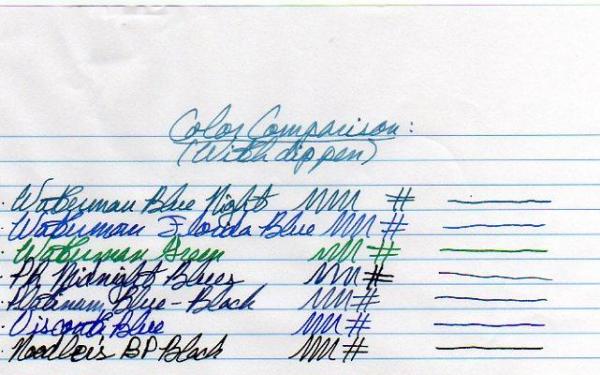 Color Comparison:
(With dip pen)
Waterman Blue Night #
Waterman Florida Blue #
Waterman Green #
PR Midnight Blues #
Platinum Blue-Black #
Visconti Blue #
Noodler's BP Black #